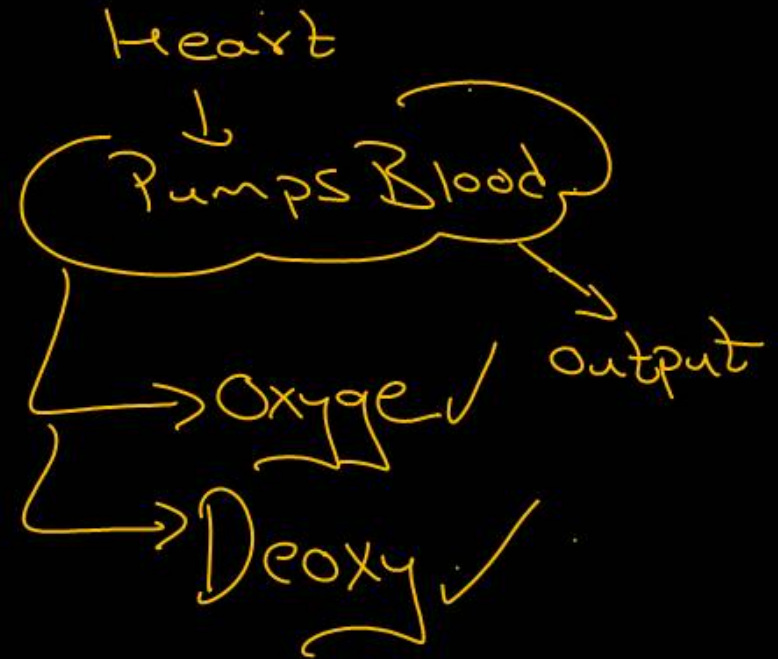 Heart
Pumps Blood
output
Oxyge
Deoxy